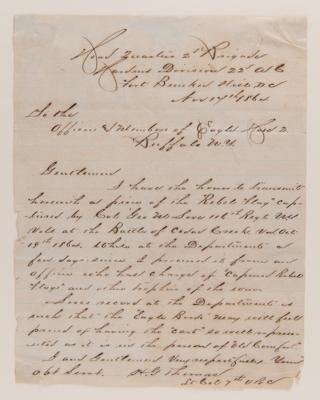 Head Quarters 2d Brigade
Hardins Division 22d A.C
Fort Bunker Hill D.C
Nov 17th 1864
To the
Officers & Members of Eagle Hose 2
Buffalo N.Y.
Gentlemen
I have the honor to transmit
herewith a piece of the Rebel flag cap-
tured by Col Geo M Love 116th Regt NY
Vols at the Battle of Cedar Creek Va Oct
19th 1864. While at the Department a
few days since I procured it from an
Officer who has charge of "Captured Rebel
flags" and other trophies of the war
record at the Department is
such that the "Eagle Birds" may well feel
proud of having the so well repre-
sented as it is in the person of "Old Comfort"
I am Gentlemen Very respectfully Your
Obt Servt. H. G. Thomas
Lt Col